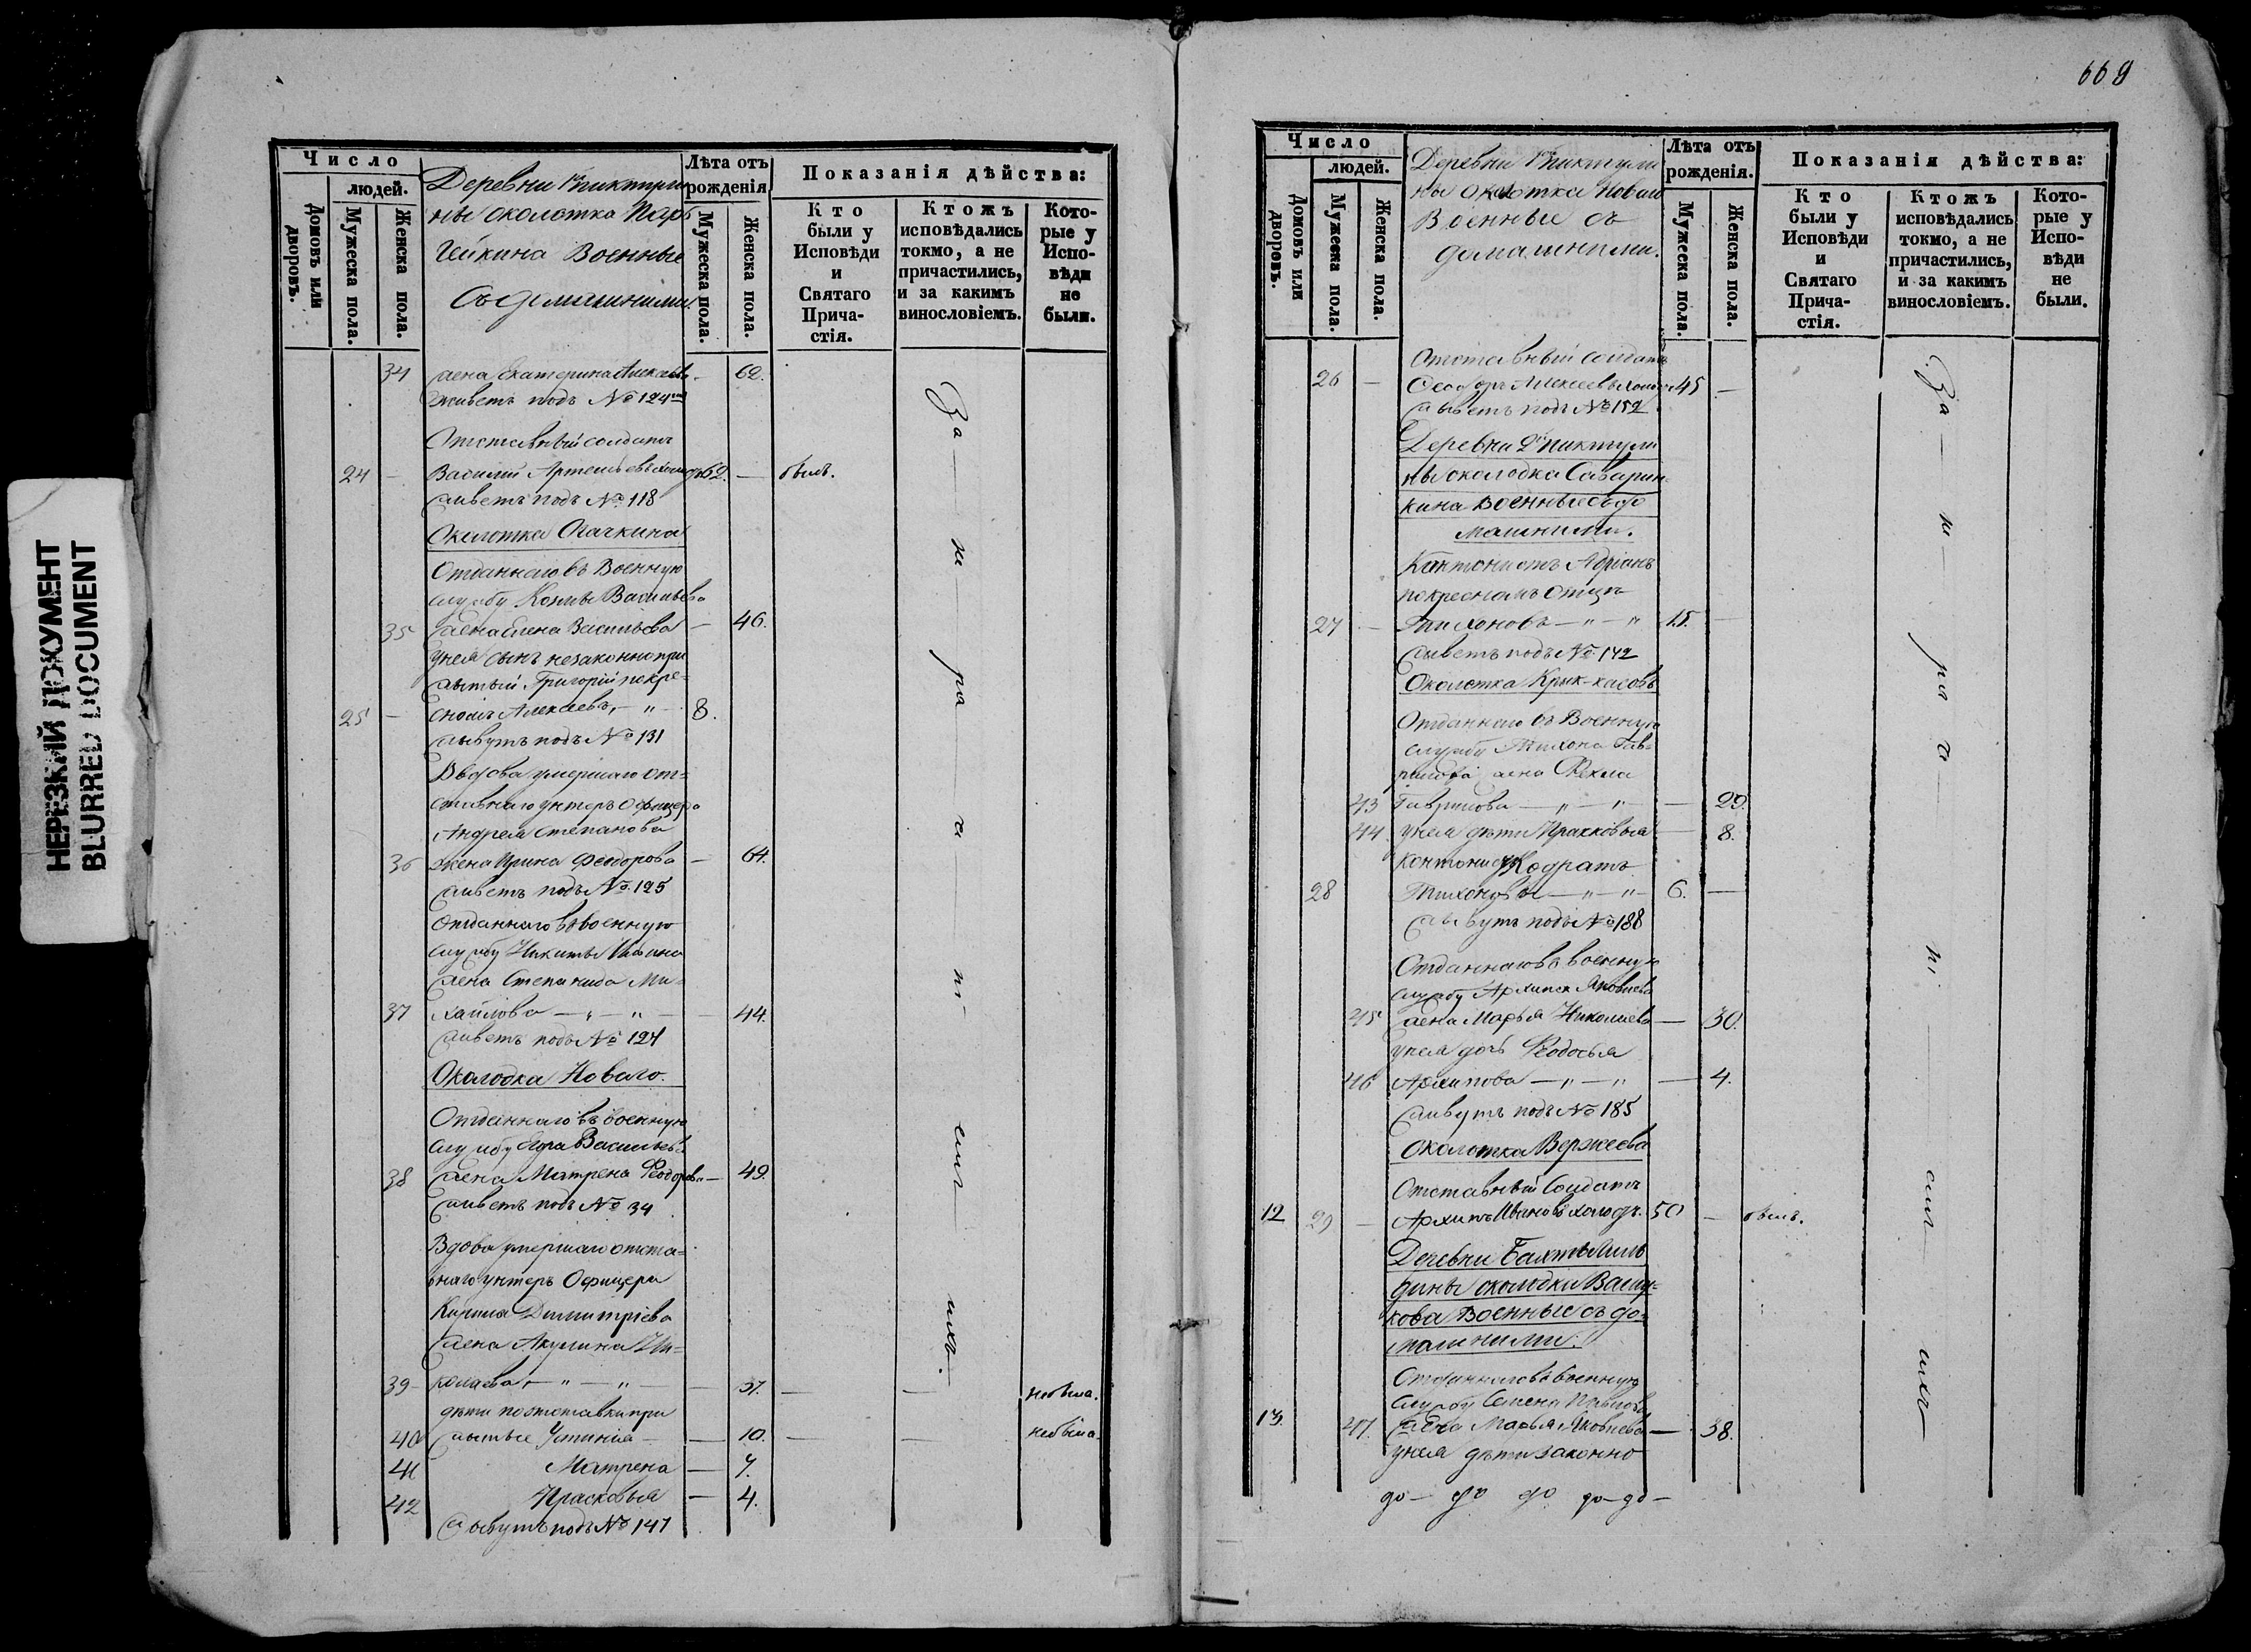 НЕРЕЗКИЙ ДОКУМЕНТ
BLURRED DOCUMENT
Число
людей.
Домовъ или дворовъ.
Мужеска пола.
Женска пола.
Деревни
ны околотка
Военные
съ домашними
Лѣта отъ рожденія
Мужеска пола.
Женска пола.
Показанія дѣйства:
Кто были у Исповѣди и Святаго Прича-стія.
Ктожъ исповѣдались токмо, а не причастились, и за какимъ винословіемъ.
Кото-рые у Испо-вѣди не были.
34 жена Екатерина Алексѣева — 62.
живетъ подъ № 124
Отставный солдатъ
24 — Василий Артемьевъ холодъ 62. — былъ.
живетъ подъ № 118
Околотка
Отданнаго въ Военную
службу Козмы Васильева
35 жена Елена Васильева — 46.
у нея сынъ незаконнопри
житый Григорій по кре-
25 — сномъ Алексѣевъ — " — 8.
живутъ подъ № 131
Вдова умершаго от-
ставнаго унтеръ офицера
Андрея Степанова
36 жена Ирина Феодорова — 64.
живетъ подъ № 125
Отданнаго въ военную
службу Никиты
жена Степанида Ми-
37 хайлова — " — " — 44.
живетъ подъ № 124
Околодка Новаго.
Отданнаго въ военную
службу Егора Васильева
38 жена Матрена Феодорова — 49.
живетъ подъ № 34
Вдова умершаго отста-
внаго унтеръ Офицера
Кирила Димитріева
жена Акулина Ни-
39 — колаева — " — " — небыла.
дѣти по отставки при
40 житые Устинія — 10. — — небыла.
41 Матрена — 7.
42 Прасковья — 4.
живутъ подъ № 147
За — ки — ра — сі — ні — емъ — ихъ
669
Число
людей.
Домовъ или дворовъ.
Мужеска пола.
Женска пола.
Деревни
ны околотка Новаго
Военные съ
домашними.
Лѣта отъ рожденія.
Мужеска пола.
Женска пола.
Показанія дѣйства:
Кто были у Исповѣди и Святаго Прича-стія.
Ктожъ исповѣдались токмо, а не причастились, и за какимъ винословіемъ.
Кото-рые у Испо-вѣди не были.
Отставный солдатъ
26 — Феодоръ Алексеевъ холодъ 45 —
живетъ подъ № 152
Деревни 2й Пиктули
ны околодка Саварин-
кина Военные съ до
машними.
Кантонистъ Адріанъ
по кресномъ отцѣ
27 — Тихоновъ — " — " 15. —
живетъ подъ № 142
Околотка Крик-касовъ
Отданнаго въ Военную
службу Тихона Гав-
рилова жена Фекла
43 Гаврилова — " — " — 29.
44 у нея дѣти Прасковья — 8.
Кантонистъ Кодратъ
28 Тихоновы — " — " — 6. —
живутъ подъ № 188
Отданнаго въ военную
службу Архипа Яковлева
45 жена Марья Николаева — 30.
у нея дочь Феодосья
46 Архипова — " — " — 4.
живутъ подъ № 185
Околотка Вержеева
Отставный Солдатъ
12 29 — Архипъ Ивановъ холодъ. 50 — былъ.
Деревни Бахтыгиль
дины околодки
кова Военные съ до-
машними.
Отданнаго въ военную
службу Семена Павлова
13. 47. жена Марья Яковлева — 38.
у нея дѣти законно